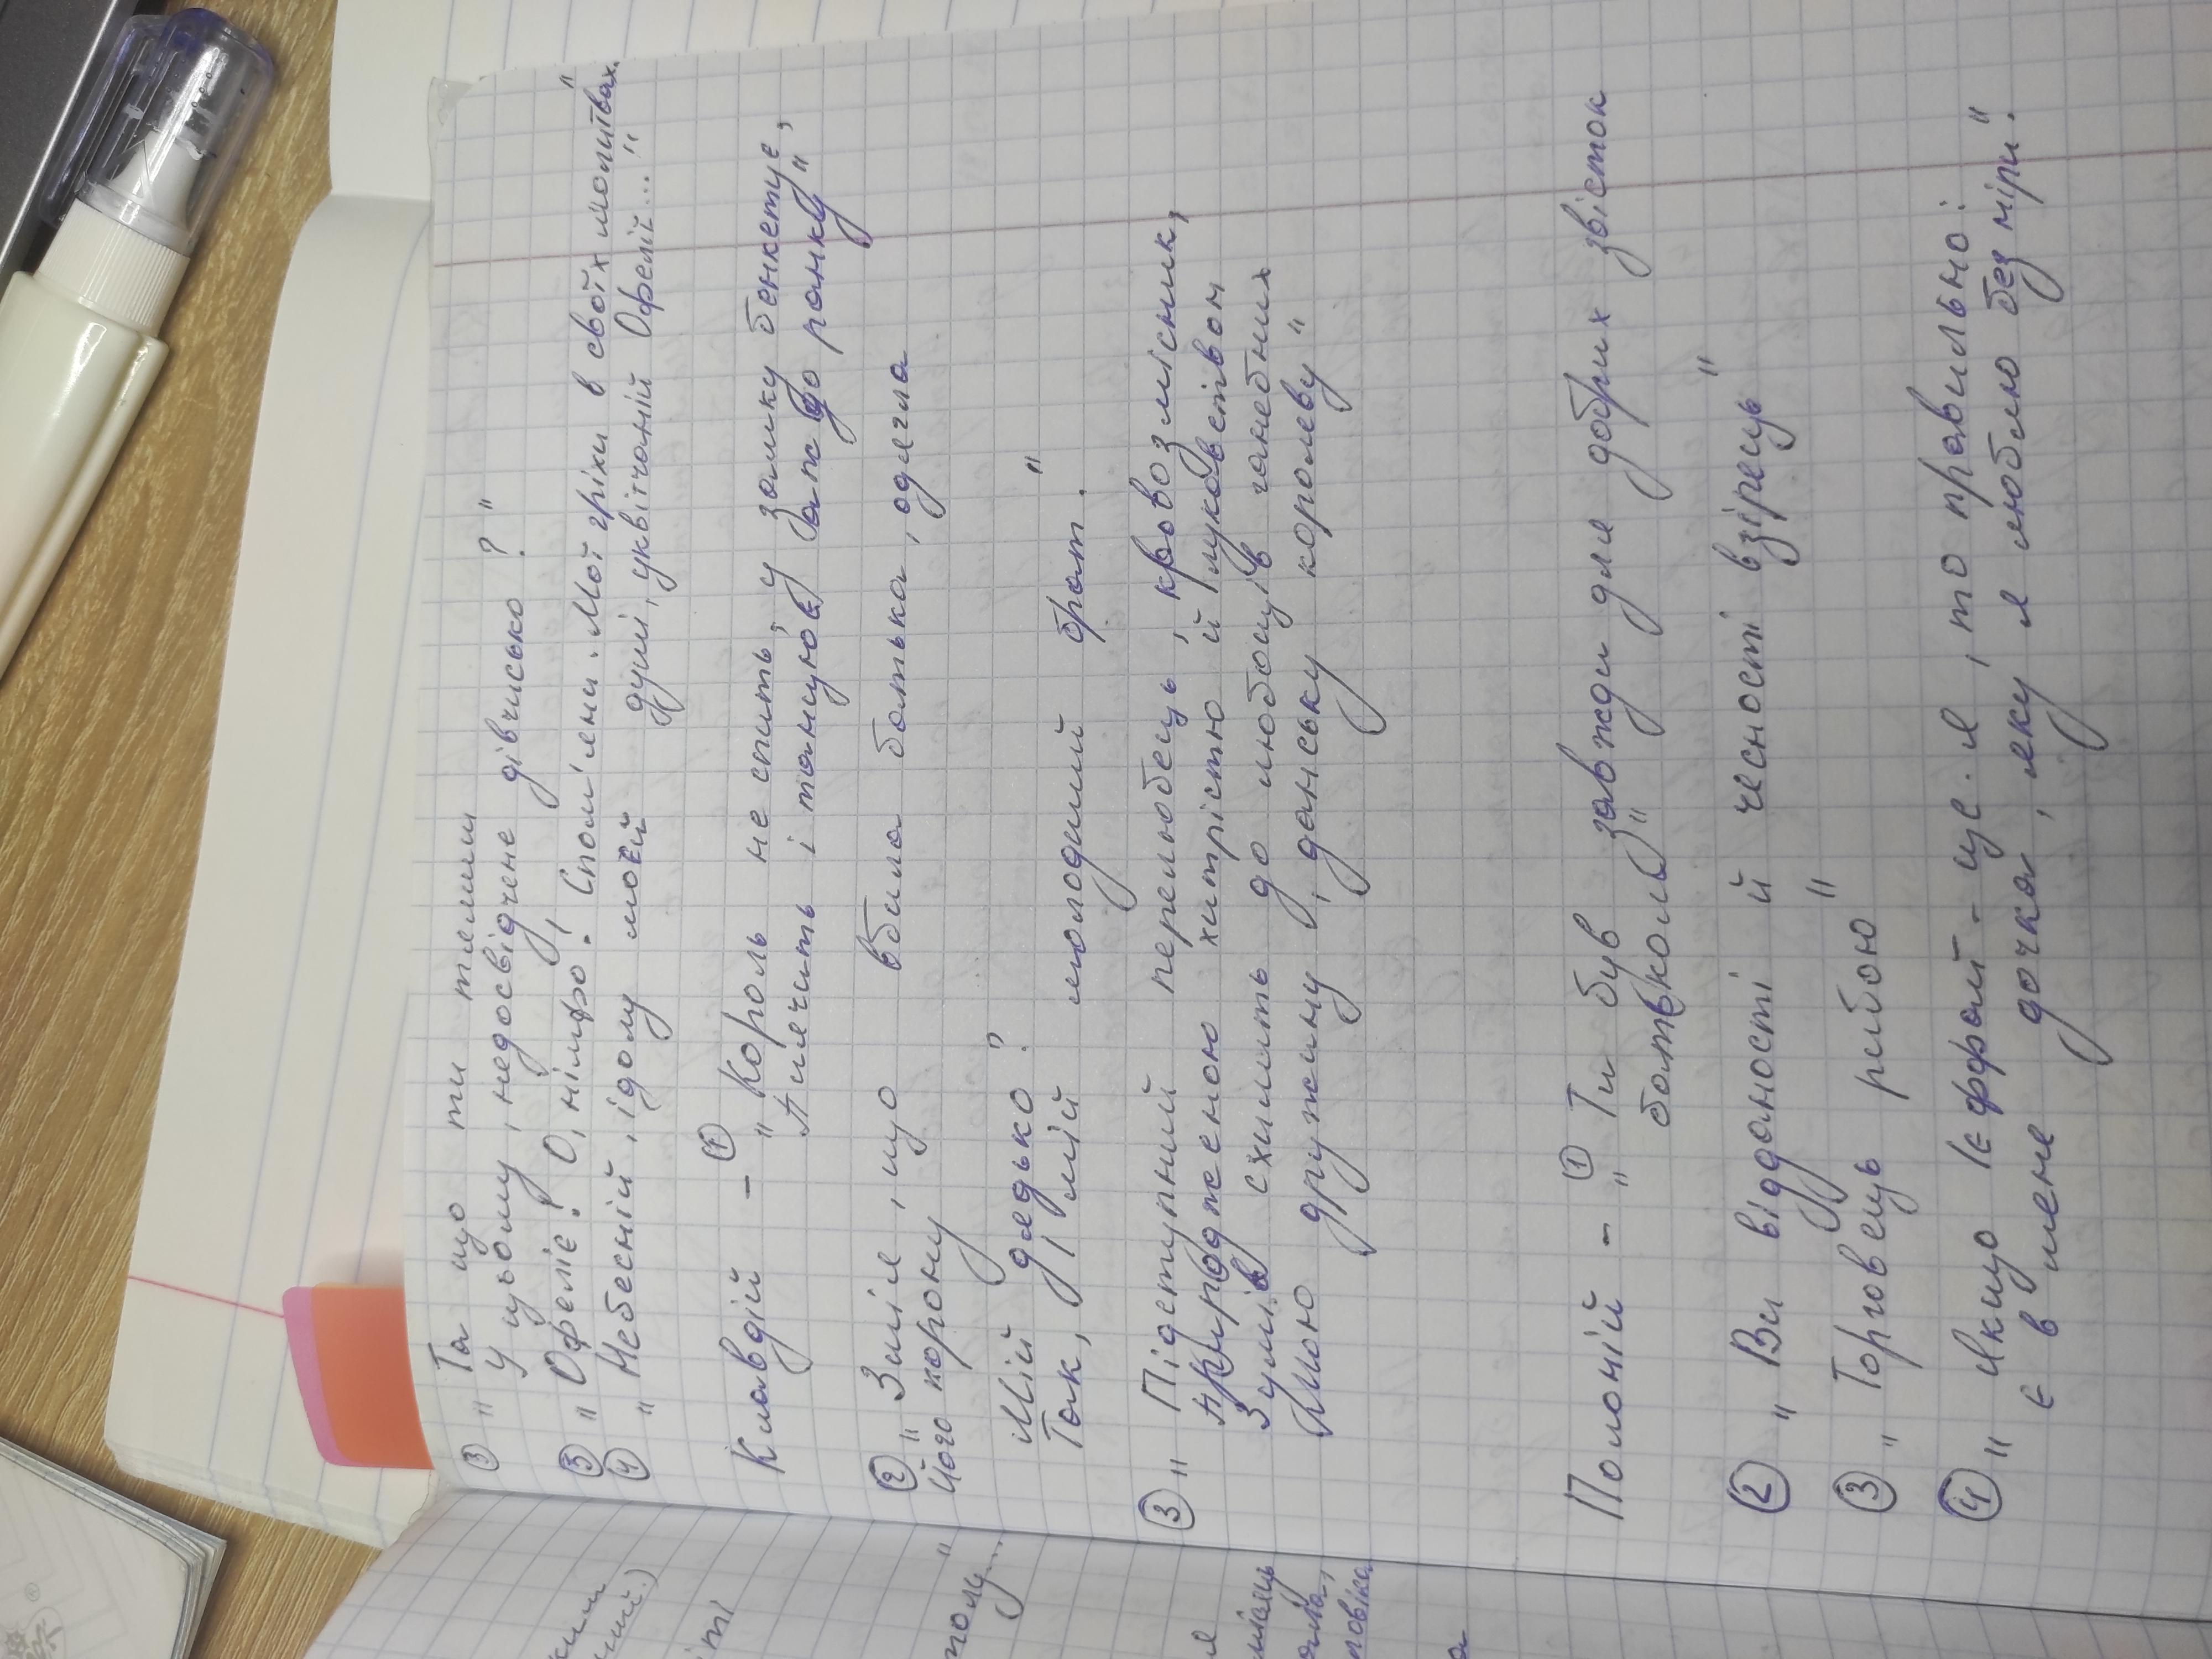 ③ „ Та що ти тямиш
У цьому, недосвідчене дівчисько ? "
③ „ Офеліє! О, німфо! Спом'яни. Мої гріхи в своїх молитвах."
④ „ Небесній, ідолу моєй душі, уквітчаній Офелії... "
Клавдій - ① „ Король не спить, у замку бенкетує,
Пиячить і танцює аж до ранку"
② „ Змія, що вбила батька, одягла
Його корону
Мій дядько?
Так, і мій молодший брат. "
③ „ Підступний перелюбець, кровозмісник,
Природженою хитрістю й лукавством
Зумів схилить до любощів ганебних
Мою дружину, данську королеву "
Полоній - ① „ Ти був завжди для добрих звісток
батьком"
② „ Ви відданості й чесності взірець "
③ „ Торговець рибою "
④ „ Якщо Ієффай - це я, то правильно:
є в мене дочка, яку я люблю без міри".
ті
тому..."
я